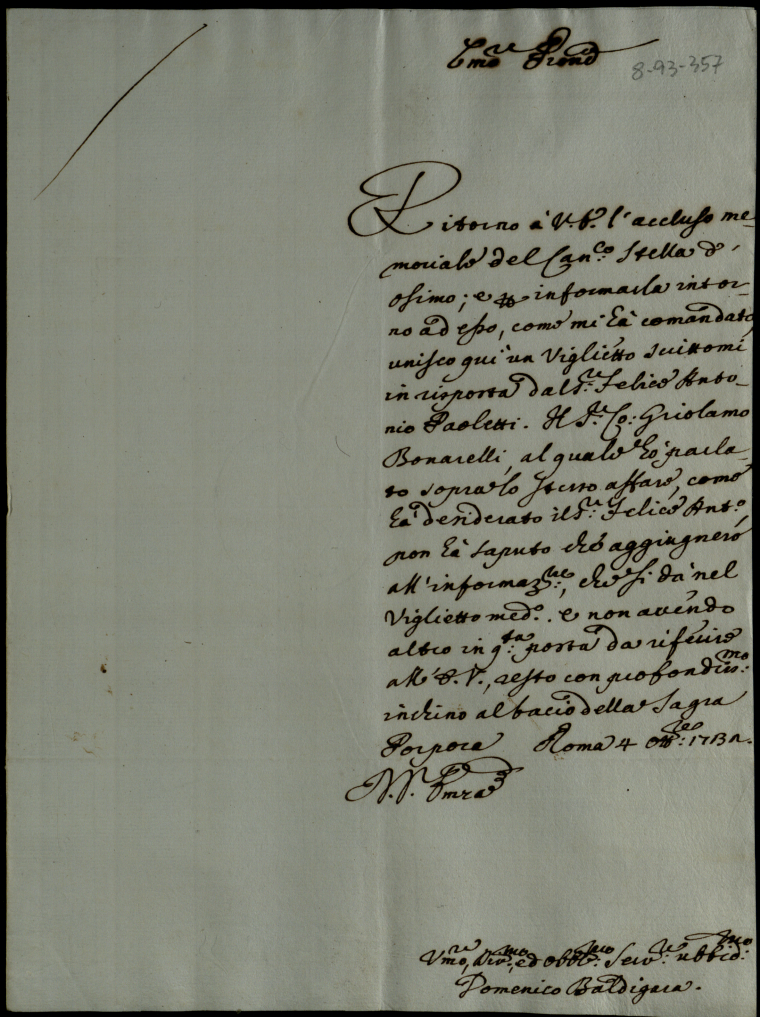 Emo. e Rmo. Prone
8-93-357
Ritorno à V. E. l'accluso me-
moriale del Can.co Stella d'
osimo; e informarla intor-
no ad esso, come mi hà comandato,
unisco qui un Viglietto scrittomi
in risposta dal S.re Felice Anto-
nio Paoletti. Il S.r Co: Griolamo
Bonarelli, al quale hò parla-
to sopra lo stesso affare, come
hà desiderato il S.re Felice Ant.o,
non hà saputo che aggiugnere
all'informaz.ne, che si dà nel
Viglietto med.o. e non avendo
altro in q.ta posta da riferire
all'E. V., resto con profondiss.mo
inchino al bacio della Sagra
Porpora Roma 4 Ott.re: 173
V. Emza
Vmo, Div.mo, ed obbl.mo Serv.re ubbid.mo
Domenico Baldigara.